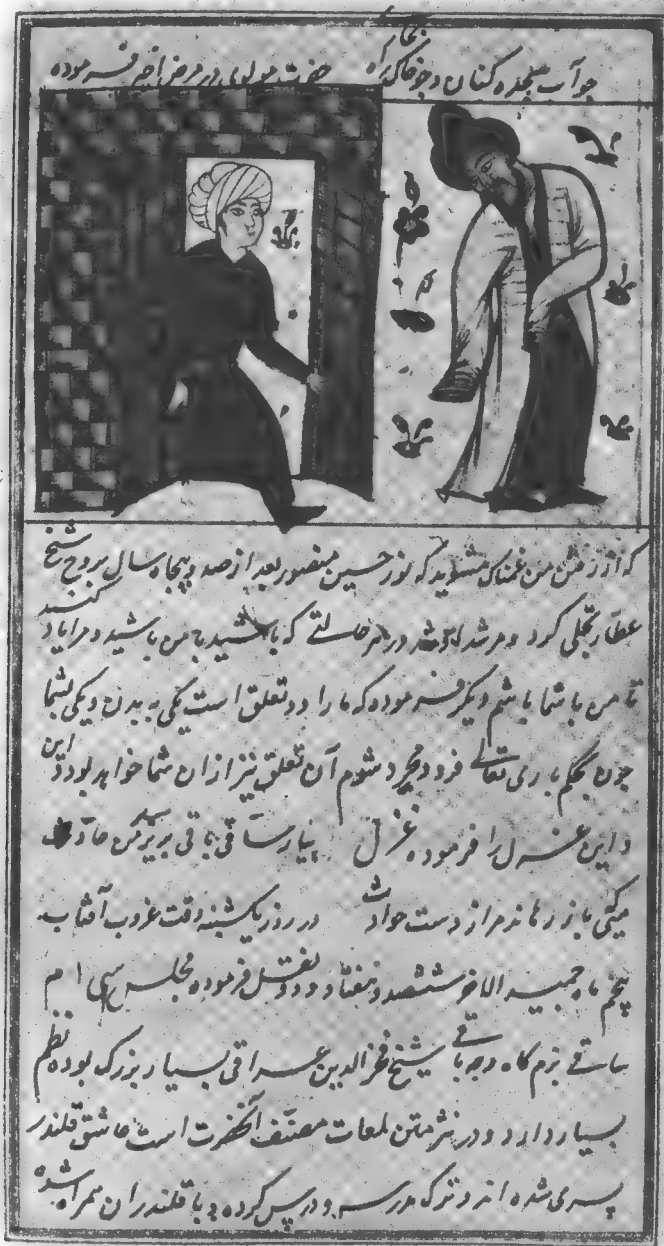 چو آب سجده کنان و چو خاک راه حضرت مولوی در مرض اخیر فرموده
که از رفتن من غمناک مشوید که نور حسین منصور بعد از صد و پنجاه سال بروح شیخ
عطار تجلی کرد و مرشد او شد در هر حالتی که باشید با من باشید و مرا یاد کنید
تا من با شما باشم دیگر فرموده که ما را دو تعلق است یکی به بدن و یکی بشما
چون بحکم باری تعالی فرد و مجرد شوم آن تعلق نیز از ان شما خواهد بود
و این غزل را فرموده غزل بیار ساقی باقی
میکنی باز رهاند مرا از دست حوادث در روز یکشنبه وقت غروب آفتاب
پنجم ماه جمید الاخر ششصد و هفتاد و دو نقل فرموده مجلس سی ام
ساقی بزم گاه وجه باقی شیخ فخر الدین عراقی بسیار بزرگ بوده نظم
بسیار دارد و در نثر متن لمعات مصنف آنحضرت است عاشق قلندر
پسری شده اند و ترک مدرسه و درس کرده و با قلندران همراه شده